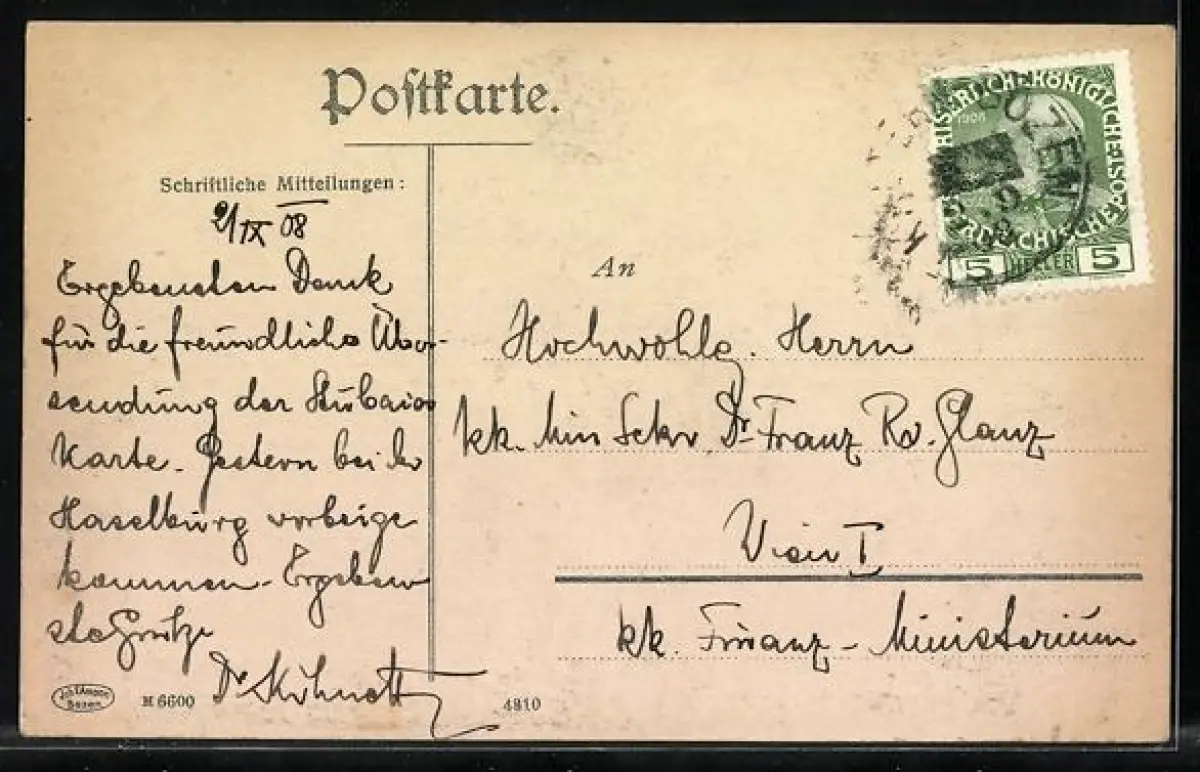 Postkarte.
Schriftliche Mitteilungen:
2/IX 08
Ergebensten Dank
für die freundliche Über-
sendung der Stubaier
Karte. Gestern bei der
Haselburg vorbeige
kommen. Ergeben
ste Grüße
Dr
An
Hochwohlg. Herrn
kk. Min Sekr. Dr. Franz Rv. Glanz
Wien I
kk. Finanz-Ministerium
KAISERLICHE KÖNIGLICHE
1908
ÖSTERREICHISCHE
5 HELLER 5
BOZEN
Joh. F. Amonn
Bozen
M 6600
4810